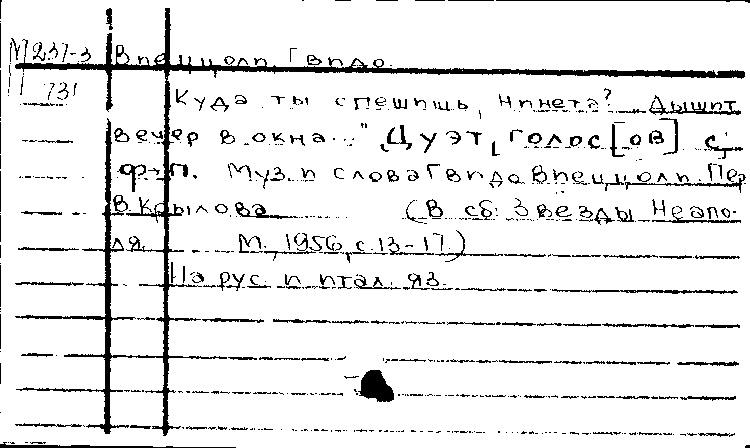 М237-3 Виеццоли, Гвидо.
731 Куда ты спешишь, Нинета? „Дышит
вечер в окна..." Дуэт, голос [ов] с
ф-п. Муз. и слова Гвидо Виеццоли. Пер.
В. Крылова (В сб: Звезды Неапо-
ля. М., 1956, с. 13-17.)
На рус. и итал. яз.